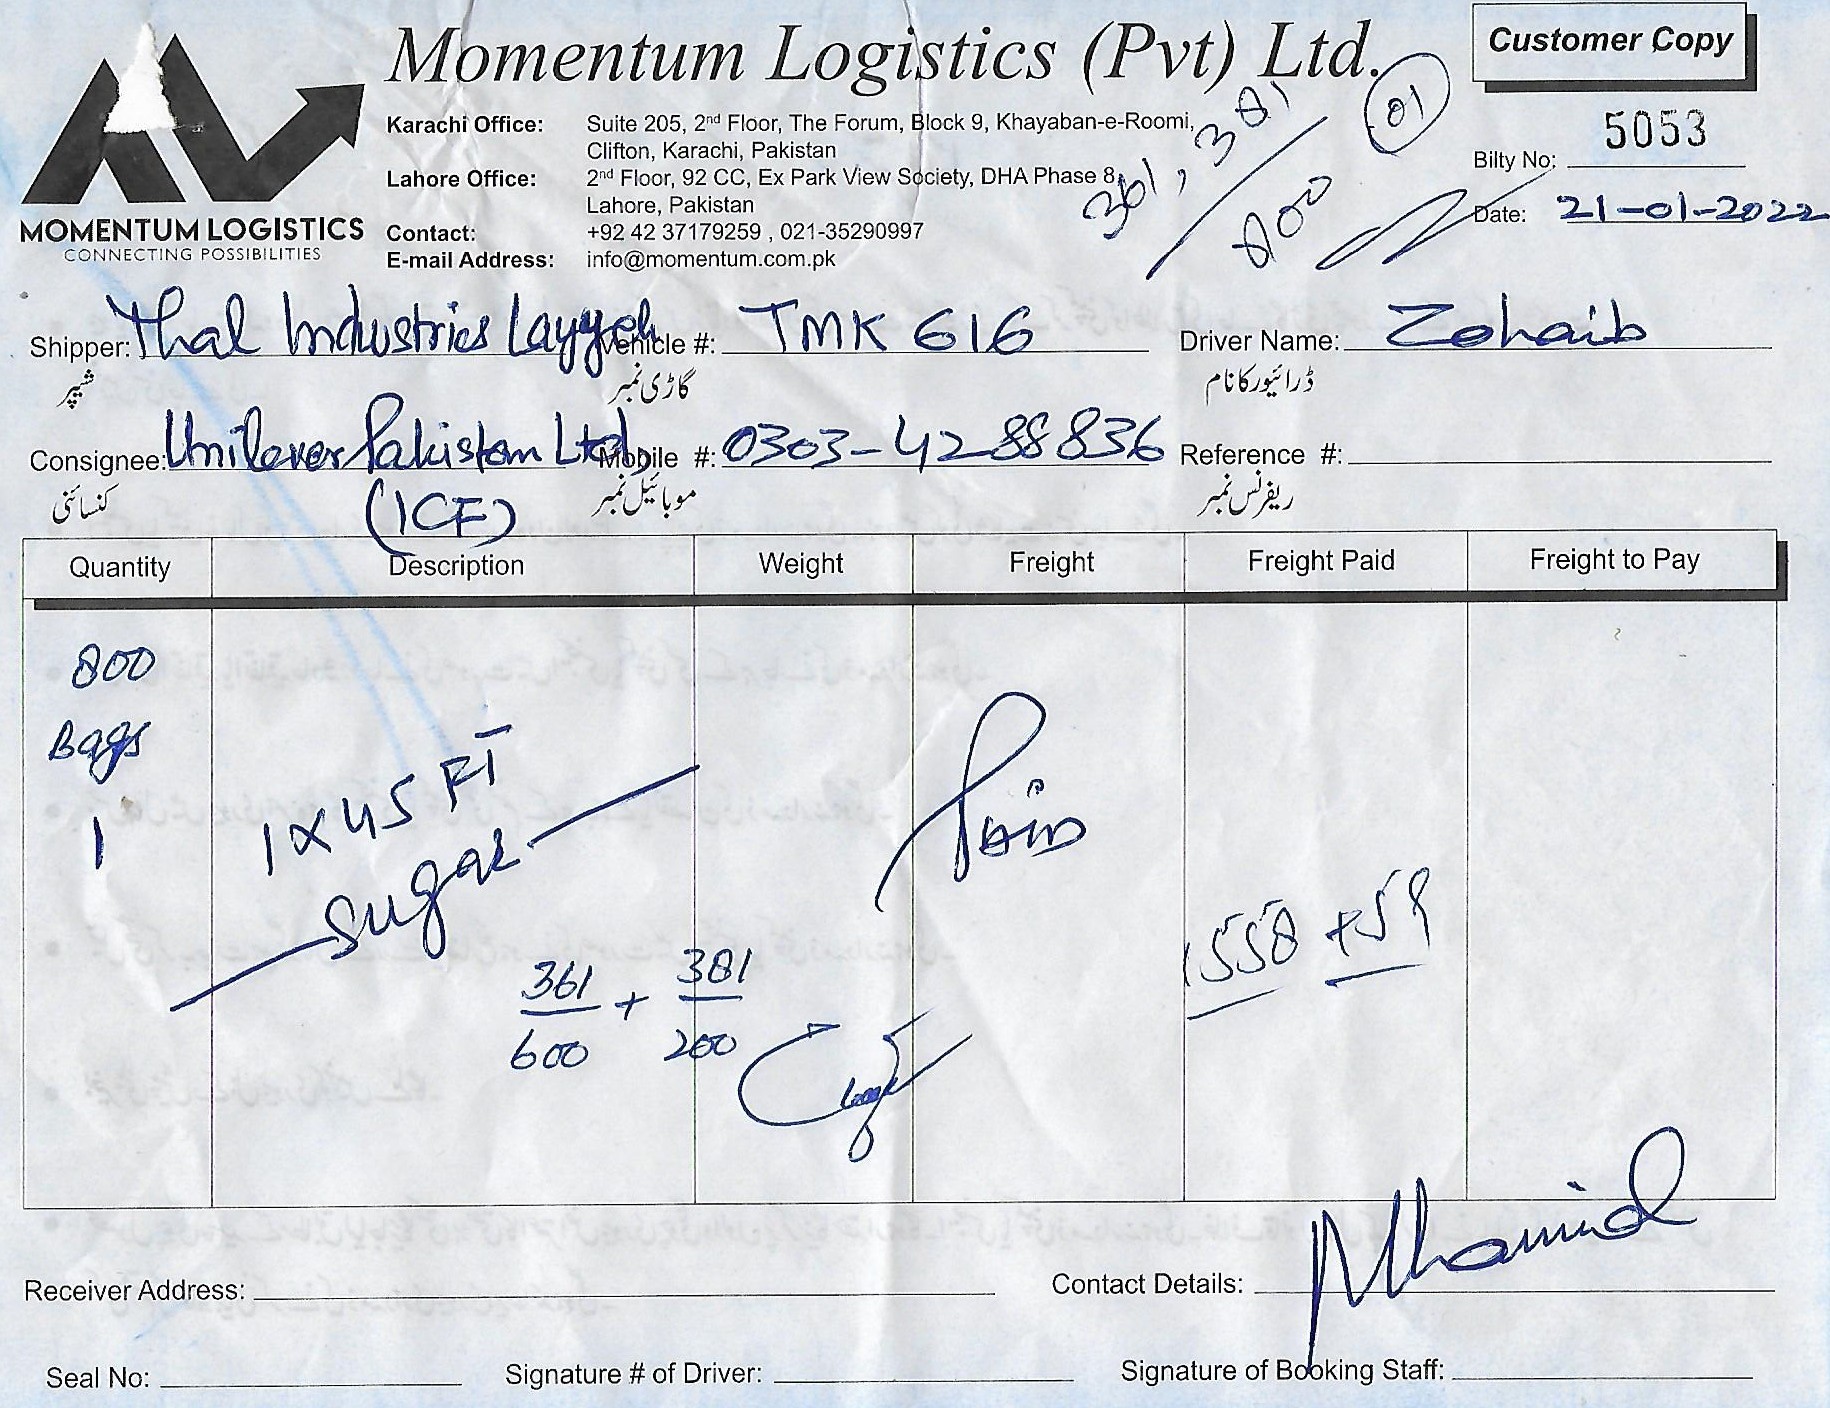 Momentum Logistics (Pvt) Ltd.
Customer Copy
MOMENTUM LOGISTICS
CONNECTING POSSIBILITIES
Karachi Office: Suite 205, 2nd Floor, The Forum, Block 9, Khayaban-e-Roomi,
Clifton, Karachi, Pakistan
Lahore Office: 2nd Floor, 92 CC, Ex Park View Society, DHA Phase 8,
Lahore, Pakistan
Contact: +92 42 37179259 , 021-35290997
E-mail Address: info@momentum.com.pk
361, 381
800
01
Bilty No: 5053
Date: 21-01-2022
Shipper: Thal Industries Layyah Vehicle #: TMK 616 Driver Name: Zohaib
شیپر گاڑی نمبر ڈرائیور کا نام
Consignee: Unilever Pakistan Ltd, Mobile #: 0303-4288836 Reference #:
کنسائنی موبائیل نمبر ریفرنس نمبر
(ICF)
Quantity Description Weight Freight Freight Paid Freight to Pay
800
Bags
1
1 x 45 FT
Sugar
Paid
1558 + 59
361 + 381
600 200
Receiver Address: Contact Details:
Seal No: Signature # of Driver: Signature of Booking Staff: